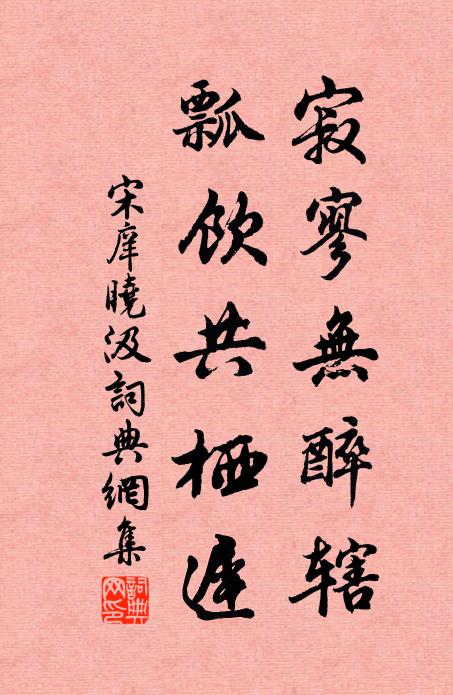 寂寥無醉辖
瓢飲共栖遲
宋庠曉汲詞典網集
詞典网印